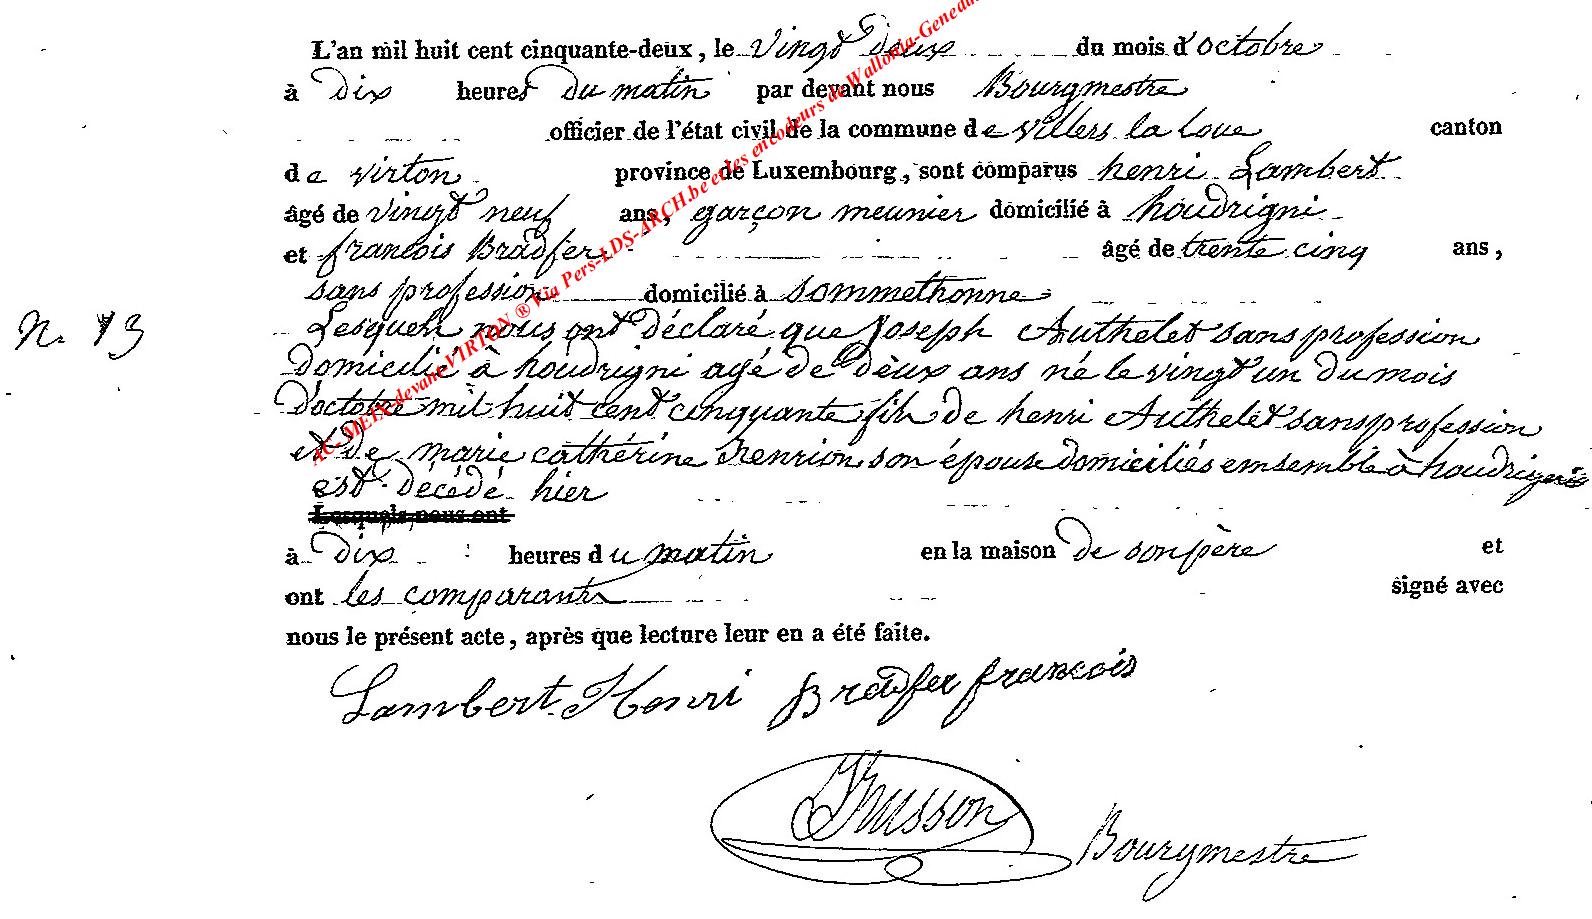 L'an mil huit cent cinquante-deux, le vingt deux du mois d'octobre
à dix heures du matin par devant nous Bourgmestre
officier de l'état civil de la commune de villers la loue canton
de virton province de Luxembourg, sont comparus henri Lambert
âgé de vingt neuf ans, garçon meunier domicilié à houdrigni
et francois Bradfer âgé de trente cinq ans,
sans profession domicilié à sommethonne
N. 13 Lesquels nous ont déclaré que Joseph Authelet sans profession
domicilié à houdrigni agé de deux ans né le vingt un du mois
d'octobre mil huit cent cinquante fils de henri Authelet sans profession
et de marie cathérine henrion son épouse domiciliés emsemble à houdrigni
est décédé hier
Lesquels nous ont
à dix heures du matin en la maison de son père et
ont les comparants signé avec
nous le présent acte, après que lecture leur en a été faite.
Lambert Henri Bradfer françois
Husson
Bourgmestre
AC-METX-devant-VIRTON ® Via Pers-LDS-ARCH.be et les encodeurs de Wallonia-Genea